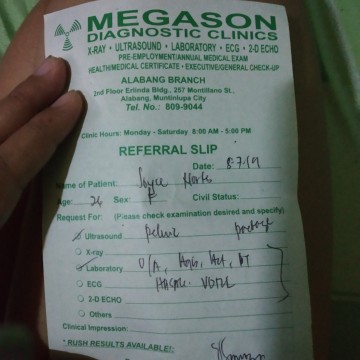 MEGASON
DIAGNOSTIC CLINICS
X-RAY • ULTRASOUND • LABORATORY • ECG • 2-D ECHO
PRE-EMPLOYMENT/ANNUAL MEDICAL EXAM
HEALTH/MEDICAL CERTIFICATE • EXECUTIVE/GENERAL CHECK-UP
ALABANG BRANCH
2nd Floor Erlinda Bldg., 257 Montillano St.,
Alabang, Muntinlupa City
Tel. No.: 809-9044
Clinic Hours: Monday - Saturday 8:00 AM - 5:00 PM
REFERRAL SLIP
Date: 8-7-19
Name of Patient: Joyce
Age: 24 Sex: F Civil Status:
Request For: (Please check examination desired and specify)
Ultrasound pelvic
X-ray
Laboratory U/A, HBsAg, Hct, BT
ECG VDRL
2-D ECHO
Others
Clinical Impression:
* RUSH RESULTS AVAILABLE!